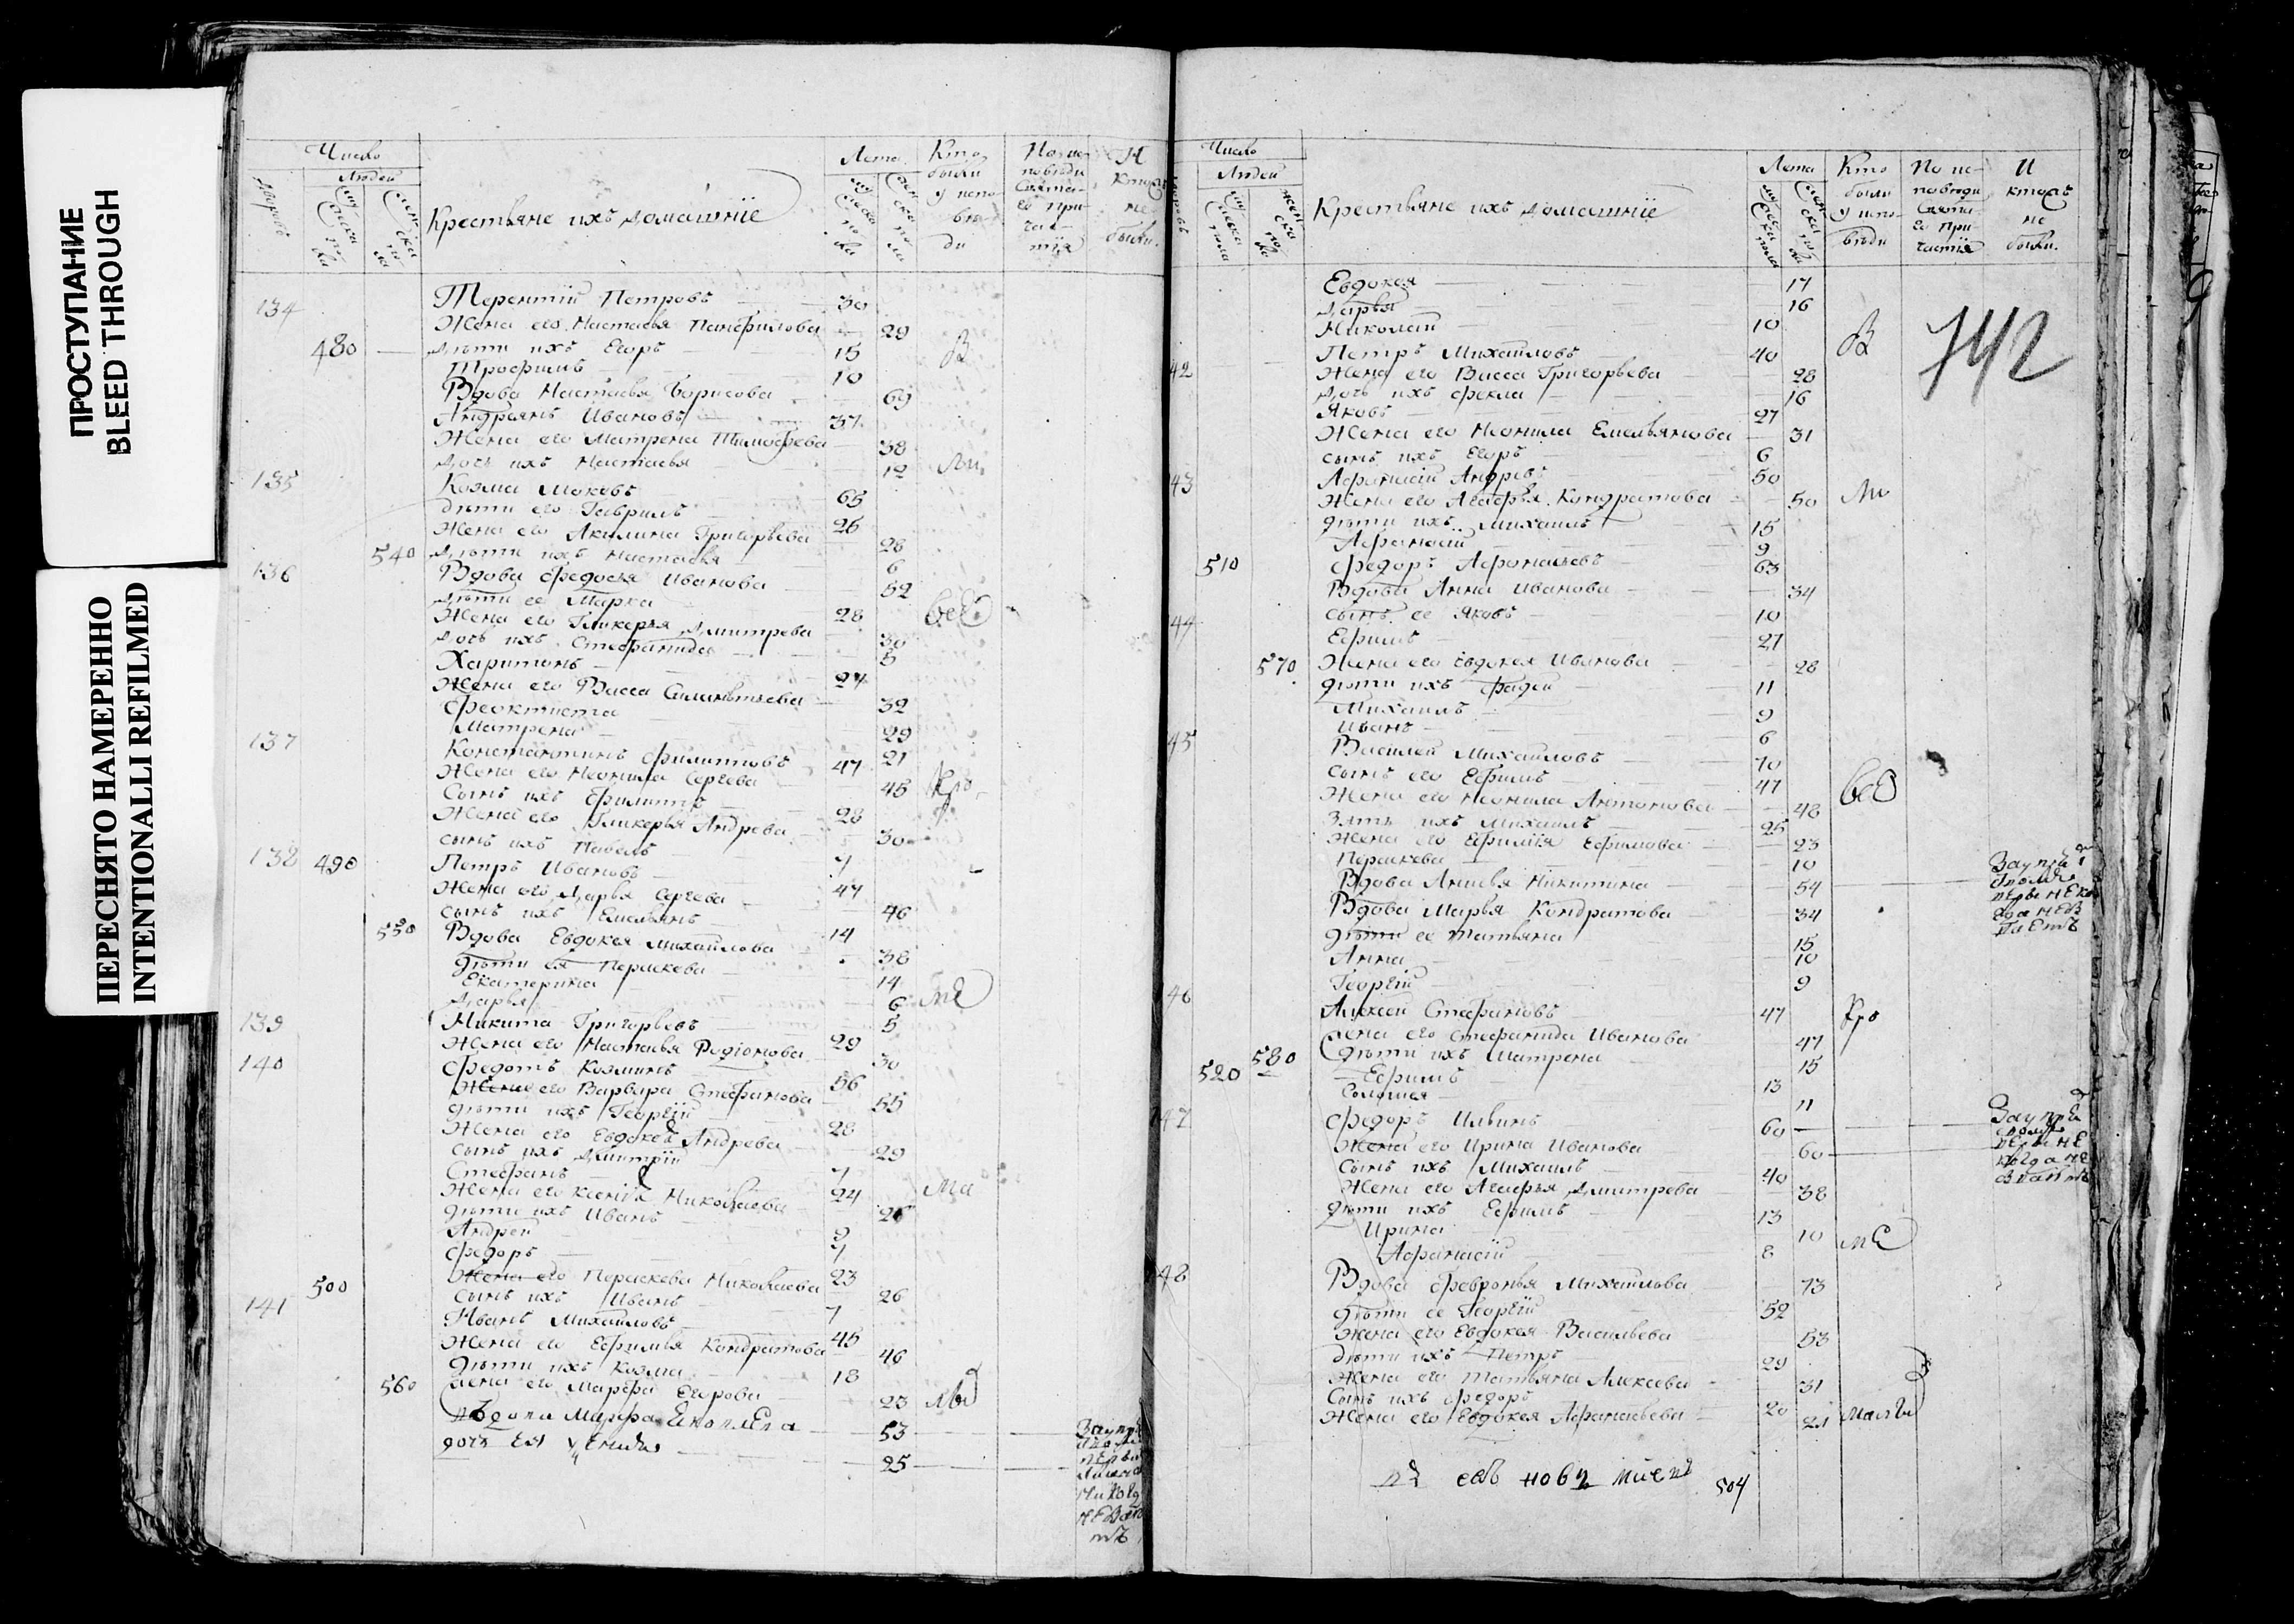 ПРОСТУПАНИЕ
BLEED THROUGH
ПЕРЕСНЯТО НАМЕРЕННО
INTENTIONALLI REFILMED
Число
Людей
Крестьяне ихъ домашнїе
Лета
Кто были у испо-вѣди
По испове́ди Святаго причастїя
И кто не были.
134 Терентїй Петровъ 30
Жена его Настасья Панфилова 29
480 дѣти ихъ Егоръ 15
Трофимъ 10
Вдова Настасья Борисова 69
Андреянъ Ивановъ 37
Жена его Матрена Тимофеева 38
дочь ихъ Настасья 12
135 Козма 65
дѣти его Гаврилъ 26
Жена его Акилина Григорьева 28
540 дѣти ихъ Настасья 6
136 Вдова Федосья Иванова 52
дѣти ее Марка 28
Жена его Гликерья Дмитрева 30
дочь ихъ Стефанида 5
Харитонъ 24
Жена его Васса 32
Феоктиста 29
Матрена 21
137 Константинъ Филиповъ 47
Жена его Неонила Сергева 45
Сынъ ихъ Филиппъ 28
Жена его Гликерья Андрева 30
сынъ ихъ Павелъ 7
138 490 Петръ Ивановъ 47
Жена его Дарья Сергева 46
сынъ ихъ Емельянъ 14
550 Вдова Евдокея Михайлова 38
дѣти ея Пераскева 14
Екатерина 6
Дарья 5
139 Никита Григорьевъ 29
Жена его Настасья Родїонова 30
140 Федотъ Козминъ 56
Жена его Варвара Стефанова 55
дѣти ихъ Георгїй 28
Жена его Евдокея Андрева 29
сынъ ихъ Дмитрїй 7
Стефанъ 24
Жена его Ксенїя Николаева
дѣти ихъ Иванъ 9
Андрей 7
Федоръ 23
Жена его Пераскева Николаева 26
500 сынъ ихъ Иванъ 7
141 Иванъ Михайловъ 45
Жена его Ефимья Кондратова 46
дѣти ихъ Козма 18
560 Жена его Марфа Егорова 23
Марфа 53
дочь Ея 25
Число
Людей
Крестьяне ихъ домашнїе
Лета
Кто были у испо-вѣди
По исповѣди Святаго причастїя
И кто не были.
Евдокея 17
Дарья 16
Николай 10
742
42 Петръ Михайловъ 40
Жена его Васса Григорьева 28
дочь ихъ Фекла 16
Яковъ 27
Жена его Неонила Емельянова 31
сынъ ихъ Егоръ 6
43 Афанасїй Андревъ 50
Жена его Агафья Кондратова 50
дѣти ихъ Михаилъ 15
Афанасїй 9
510 Федоръ Афонасьевъ 63
Вдова Анна Иванова 34
44 сынъ ее Яковъ 10
Ефимъ 27
570 Жена его Евдокея Иванова 28
дѣти ихъ Фадей 11
Михаилъ 9
Иванъ 6
45 Василей Михайловъ 70
Сынъ его Ефимъ 47
Жена его Неонила Антонова 48
Зять ихъ Михаилъ 25
Жена его Ефимїя Ефимова 23
Пераскева 10
Вдова Анисья Никитина 54
Вдова Марья Кондратова 34
дѣти ее Татьяна 15
Анна 10
Георгїй 9
46 Алексей Стефановъ 47
Жена его Стефанида Иванова 47
580 дѣти ихъ Матрена 15
520 Ефимъ 13
Соломея 11
147 Федоръ Ильинъ 60
Жена его Ирина Иванова 60
Сынъ ихъ Михаилъ 40
Жена его Агафья Дмитрева 38
дѣти ихъ Ефимъ 13
Ирина 10
Афанасїй 8
48 Вдова Февронья Михайлова 73
дѣти ее Георгїй 52
Жена его Евдокея Васильева 53
дѣти ихъ Петръ 29
Жена его Татьяна Алексева 31
Сынъ ихъ Федоръ 20
Жена его Евдокея Афанасьева 21
504